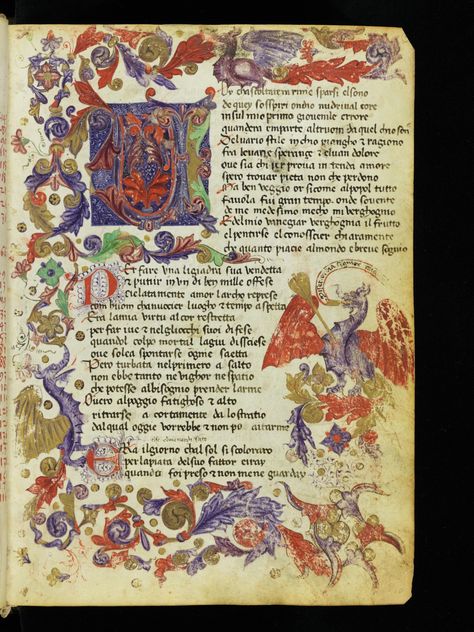 chascoltati in rime sparsi elsono
de quey sosspiri ondio nudrival core
insul mio primo giovenile errore
quandera emparte altruom da quel chio son
Delvario stile inchio piangho & ragiono
fra levane speranze & elvan dolore
ove sia chi per prova intenda amore
spero trovar pieta non che perdono
Ma ben veggio or sicome alpopol tutto
favola fui gran tempo onde sovente
de me medesimo mecho mi verghogno
Edelmio vaneggiar verghognia il frutto
elpentirse el conosser chiaramente
che quanto piacie almondo e breve sognio
Per fare una ligiadra sua vendetta
& punir inun di ben mille offese
cielatamente amor larcho represe
com huom chanuocer luogho & tempo aspetta
Era lamia virtu al cor restretta
per far ive & neglìocchi suoi difese
quandol colpo mortal lagiu disciese
ove solea spontarse ogni saetta
Pero turbata nelprimero a salto
non ebbe tanto ne vighor ne spatio
che potesse albisogno prender larme
Overo alpoggio fatighoso & alto
ritrarse a cortamente da lo stratio
dalqual oggie vorrebbe & non po aitarme
Era ilgiorno chal sol si scoloraro
per lapiata del suo fattor e i ray
quando i foi preso & non mene guarday